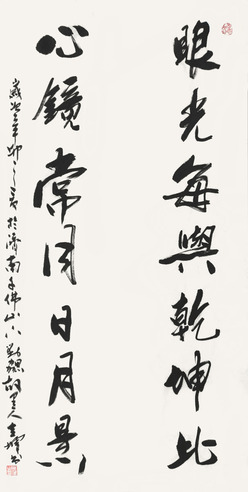 眼光每與乾坤比
心鏡常同日月懸
歲次辛卯之夏於濟南千佛山下